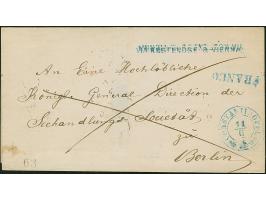 FRANCO
An Eine Hochlöbliche
Königl. General Direction der
Seehandlungs Societät
zu
Berlin
11
63